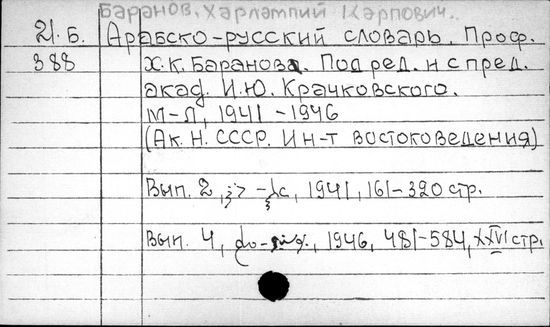 Баранов, Харлампий Карпович.
21.Б. Арабско-русский словарь. Проф.
388 Х.К. Баранова. Под ред. и с пред.
акад. И.Ю. Крачковского.
М-Л, 1941-1946
(Ак. Н. СССР. Ин-т востоковедения)
Вып. 2, 1941, 161-320 стр.
Вып. 4, 1946, 481-584, XXVI стр.